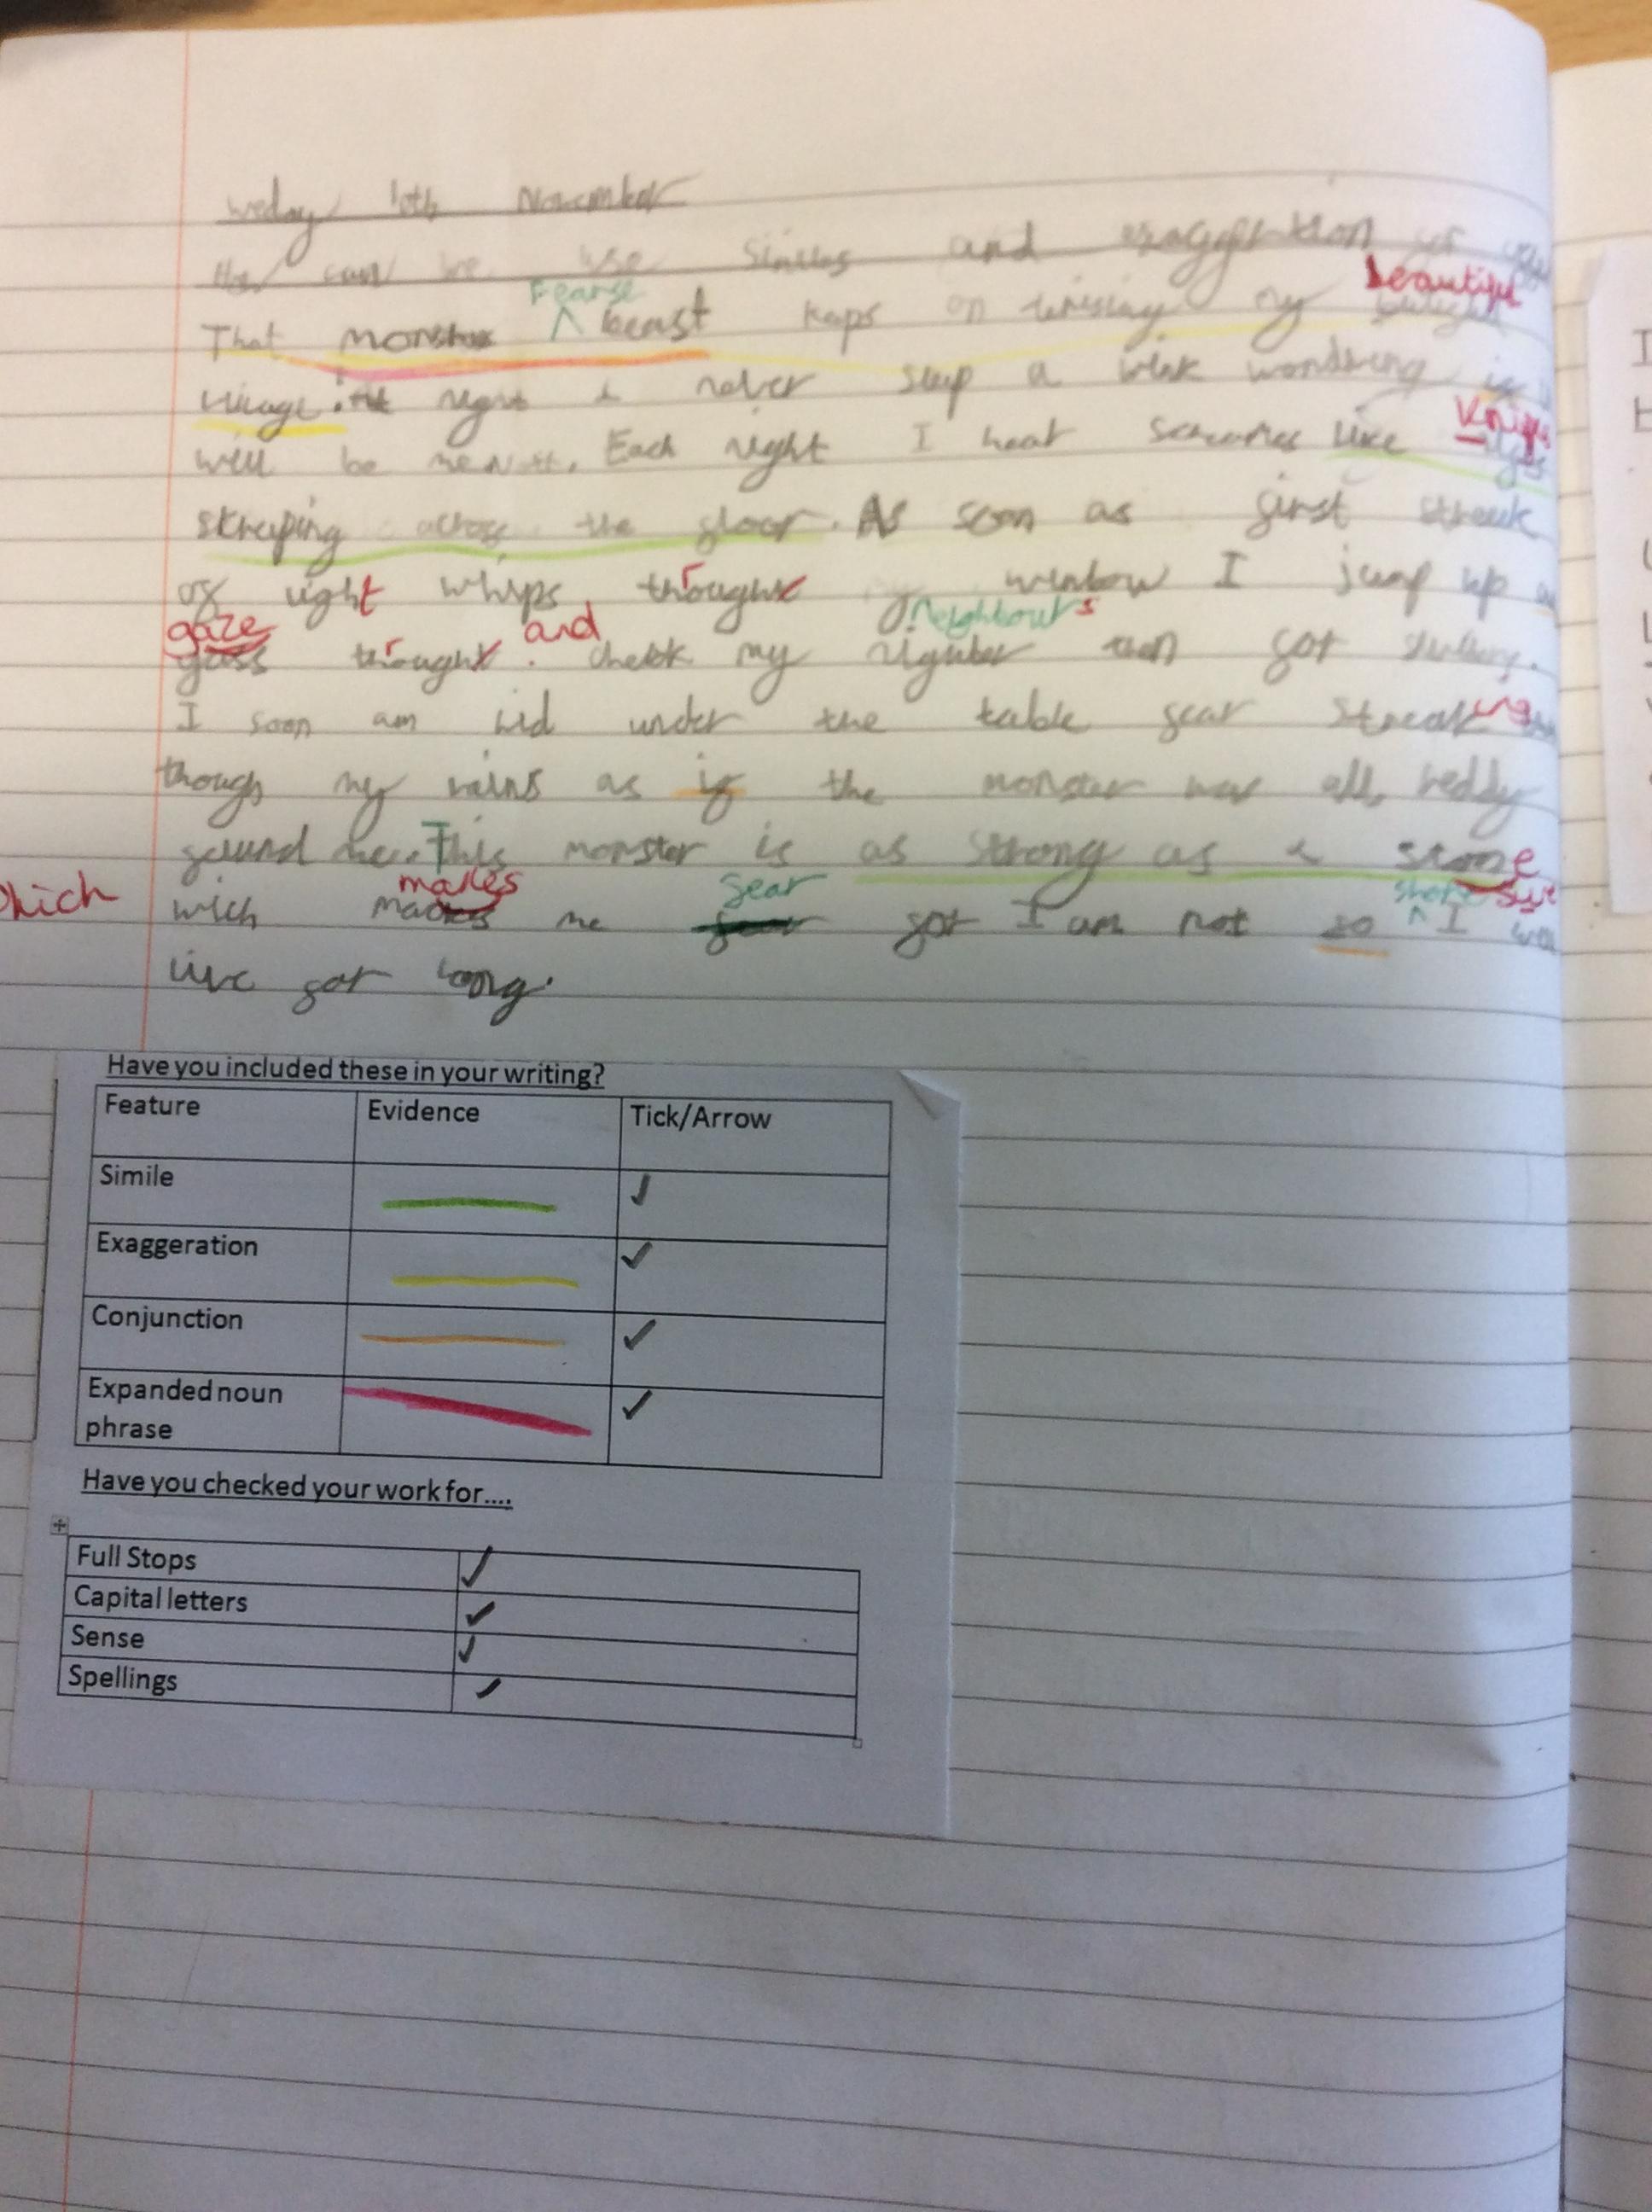 weday 10th November
can we use similes and exaggeration
Fearse beautiful
That monster ^ beast keps on my
village. At night I never sleep a wondring if I
Knife
will be next. Each night I hear screames like
skreping across the floor. As soon as first streek
of light whips throught my window I jump up
gaze and Neighbour's
gass throught. check my then for
I soon am hid under the table fear streaking
though my vains as if the monster was all reddy
found me. This monster is as strong as a stone
which makes fear shore sure
wich me for I am not so ^ I
live for long.
Have you included these in your writing?
Feature Evidence Tick/Arrow
Simile ✓
Exaggeration ✓
Conjunction ✓
Expanded noun phrase ✓
Have you checked your work for....
Full Stops ✓
Capital letters ✓
Sense ✓
Spellings ✓